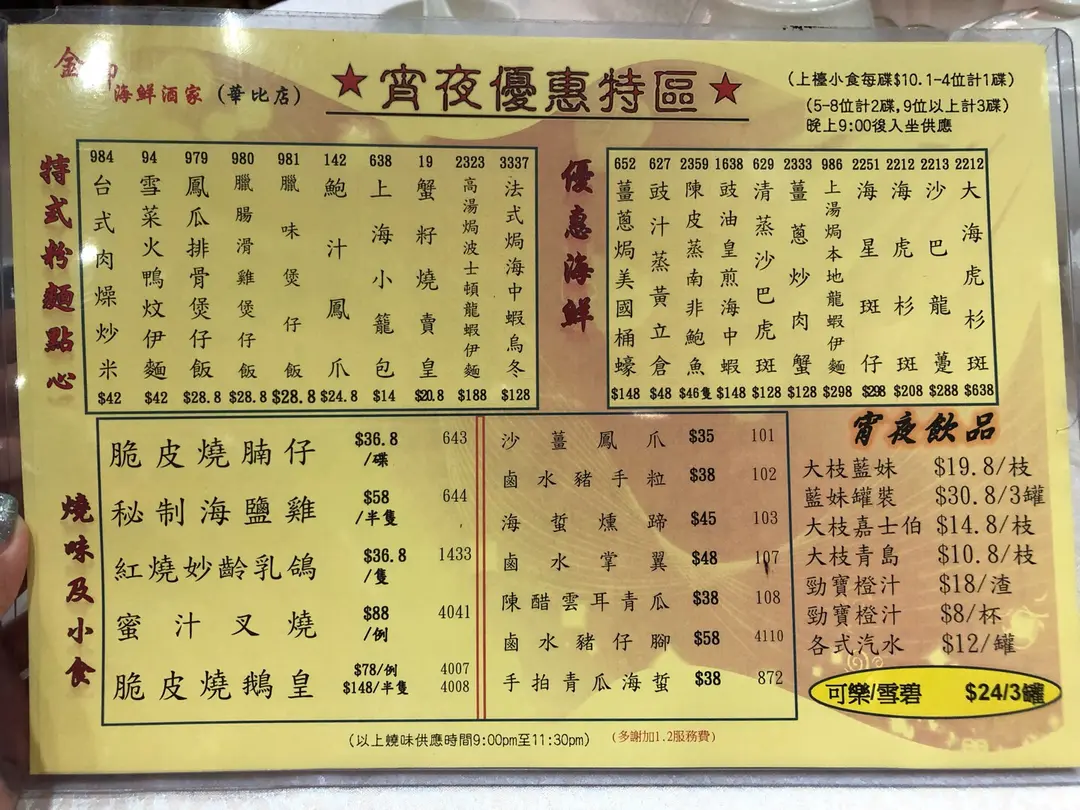 金
海鮮酒家 (華比店)
★宵夜優惠特區★
(上檯小食每碟$10.1-4位計1碟)
(5-8位計2碟,9位以上計3碟)
晚上9:00後入坐供應
特式粉麵點心
984 台式肉燥炒米 $42
94 雪菜火鴨炆伊麵 $42
979 鳳爪排骨煲仔飯 $28.8
980 臘腸滑雞煲仔飯 $28.8
981 臘味煲仔飯 $28.8
142 鮑汁鳳爪 $24.8
638 上海小籠包 $14
19 蟹籽燒賣皇 $20.8
2323 高湯焗波士頓龍蝦伊麵 $188
3337 法式焗海中蝦烏冬 $128
優惠海鮮
652 薑蔥焗美國桶蠔 $148
627 豉汁蒸黃立倉 $48
2359 陳皮蒸南非鮑魚 $46隻
1638 豉油皇煎海中蝦 $148
629 清蒸沙巴虎斑 $128
2333 薑蔥炒肉蟹 $128
986 上湯焗本地龍蝦伊麵 $298
2251 海星斑仔 $298
2212 海虎杉斑 $208
2213 沙巴龍躉 $288
2212 大海虎杉斑 $638
燒味及小食
脆皮燒腩仔 $36.8/碟 643
秘制海鹽雞 $58/半隻 644
紅燒妙齡乳鴿 $36.8/隻 1433
蜜汁叉燒 $88/例 4041
脆皮燒鵝皇 $78/例 4007
$148/半隻 4008
沙薑鳳爪 $35 101
鹵水豬手粒 $38 102
海蜇燻蹄 $45 103
鹵水掌翼 $48 107
陳醋雲耳青瓜 $38 108
鹵水豬仔腳 $58 4110
手拍青瓜海蜇 $38 872
宵夜飲品
大枝藍妹 $19.8/枝
藍妹罐裝 $30.8/3罐
大枝嘉士伯 $14.8/枝
大枝青島 $10.8/枝
勁寶橙汁 $18/渣
勁寶橙汁 $8/杯
各式汽水 $12/罐
可樂/雪碧 $24/3罐
(以上燒味供應時間9:00pm至11:30pm) (多謝加1.2服務費)